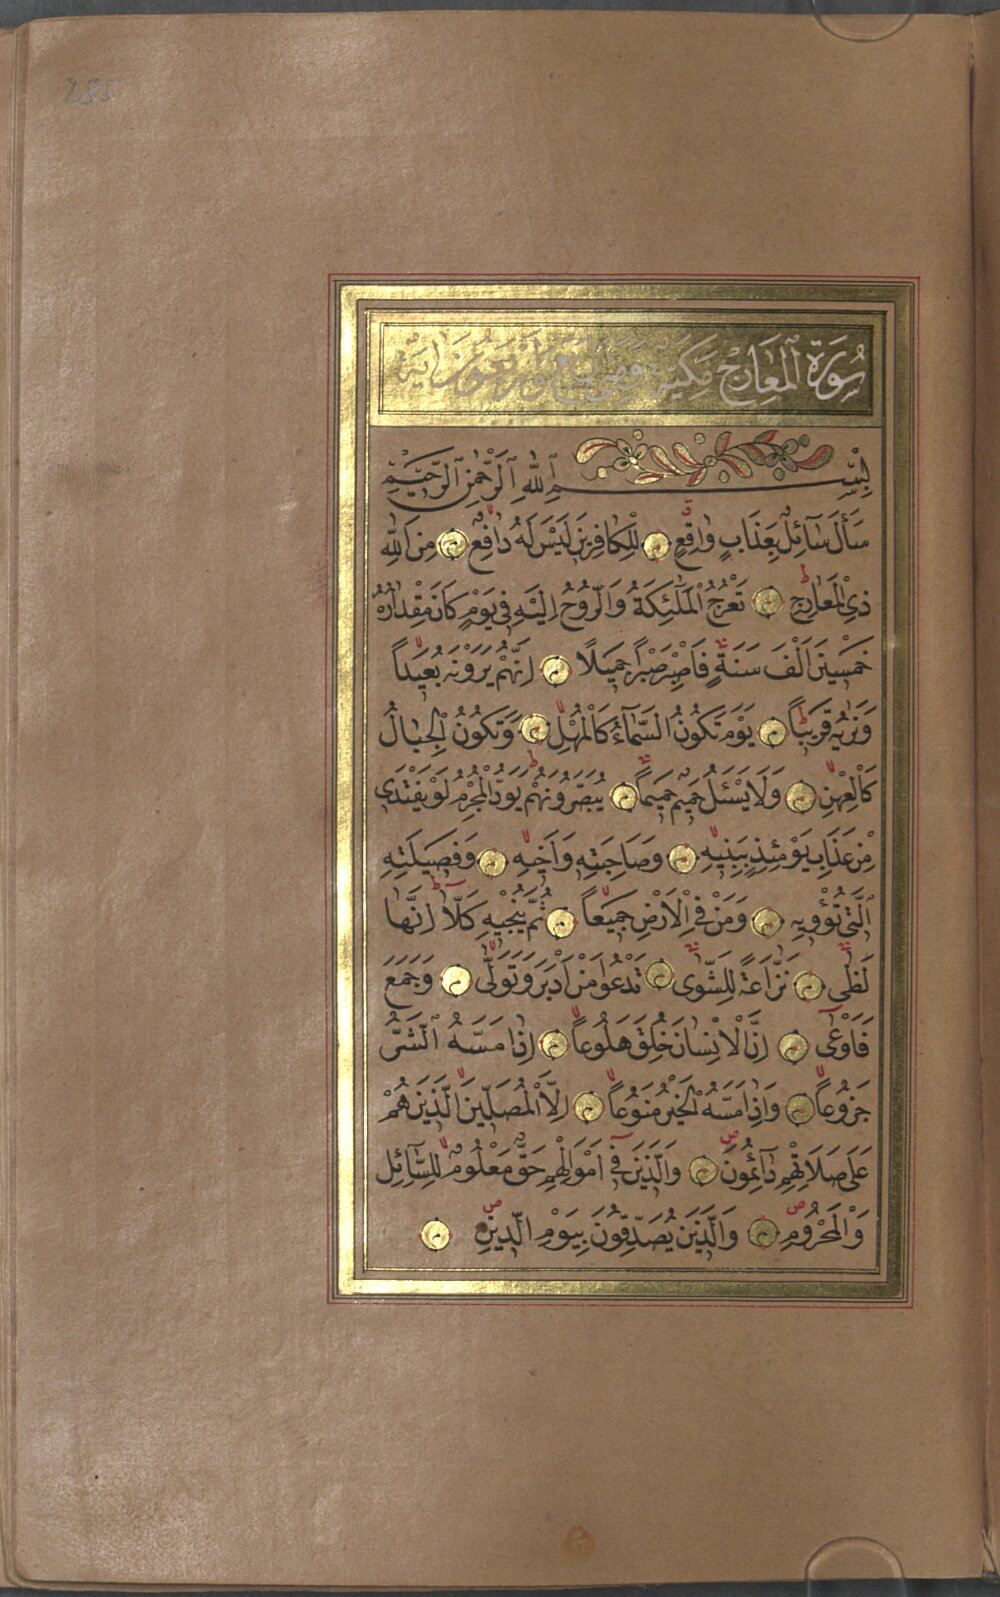 285
سُورَةُ الْمَعَارِجِ مَكِّيَّةٌ وَهِيَ وَأَرْبَعُونَ اٰيَةً
بِسْمِ اللّٰهِ الرَّحْمٰنِ الرَّحِيمِ
سَأَلَ سَآئِلٌ بِعَذَابٍ وَاقِعٍ لِلْكَافِرِينَ لَيْسَ لَهُ دَافِعٌ مِنَ اللّٰهِ
ذِي الْمَعَارِجِ تَعْرُجُ الْمَلٰٓئِكَةُ وَالرُّوحُ اِلَيْهِ فِي يَوْمٍ كَانَ مِقْدَارُهُ
خَمْسِينَ اَلْفَ سَنَةٍ فَاصْبِرْ صَبْراً جَمِيلًا اِنَّهُمْ يَرَوْنَهُ بَعِيداً
وَنَرٰيهُ قَرِيباً يَوْمَ تَكُونُ السَّمَآءُ كَالْمُهْلِ وَتَكُونُ الْجِبَالُ
كَالْعِهْنِ وَلَا يَسْئَلُ حَمِيمٌ حَمِيماً يُبَصَّرُونَهُمْ يَوَدُّ الْمُجْرِمُ لَوْ يَفْتَدِي
مِنْ عَذَابِ يَوْمَئِذٍ بِبَنِيهِ وَصَاحِبَتِهِ وَاَخِيهِ وَفَصِيلَتِهِ
الَّتِي تُؤْوِيهِ وَمَنْ فِي الْاَرْضِ جَمِيعاً ثُمَّ يُنْجِيهِ كَلَّا اِنَّهَا
لَظٰى نَزَّاعَةً لِلشَّوٰى تَدْعُوا مَنْ اَدْبَرَ وَتَوَلّٰى وَجَمَعَ
فَاَوْعٰى اِنَّ الْاِنْسَانَ خُلِقَ هَلُوعاً اِذَا مَسَّهُ الشَّرُّ
جَزُوعاً وَاِذَا مَسَّهُ الْخَيْرُ مَنُوعاً اِلَّا الْمُصَلِّينَ الَّذِينَ هُمْ
عَلٰى صَلَاتِهِمْ دَآئِمُونَ وَالَّذِينَ فِي اَمْوَالِهِمْ حَقٌّ مَعْلُومٌ لِلسَّآئِلِ
وَالْمَحْرُومِ وَالَّذِينَ يُصَدِّقُونَ بِيَوْمِ الدِّينِ